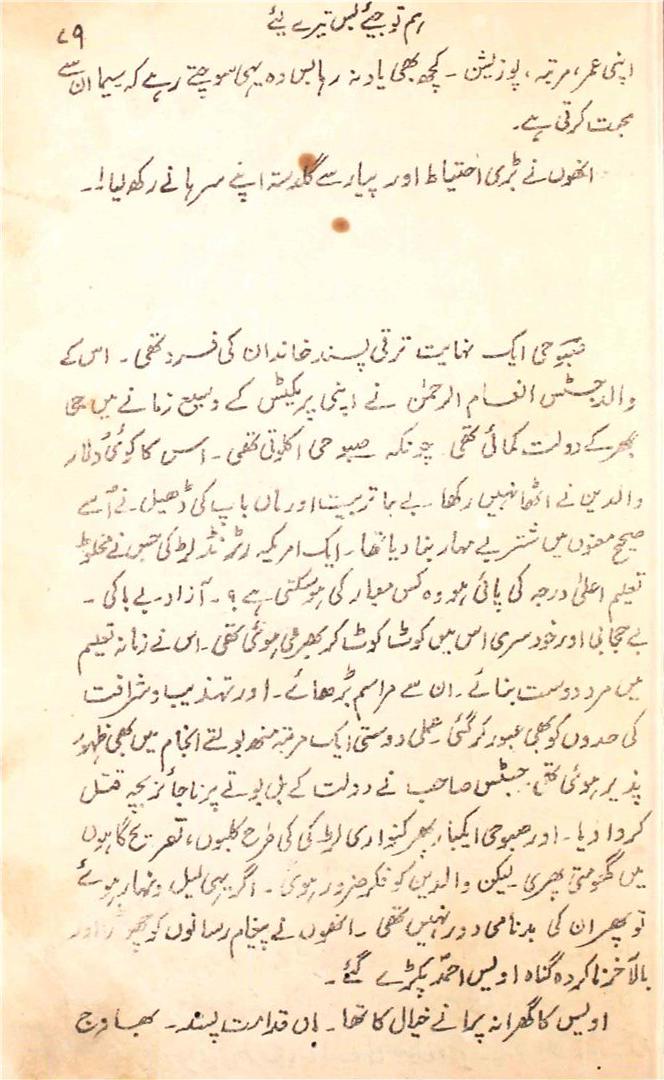 ہم تو جیئے بس تیرے لیئے
۷۹
اپنی عمر، مرتبہ، پوزیشن۔ کچھ بھی یاد نہ رہا بس وہ یہی سوچتے رہے کہ سیما ان سے
محبت کرتی ہے۔
انھوں نے بڑی احتیاط اور پیار سے گلدستہ اپنے سرہانے رکھ لیا!۔
صبوحی ایک نہایت ترقی پسند خاندان کی فرد تھی۔ اس کے
والد جسٹس انعام الرحمٰن نے اپنی پریکٹس کے وسیع زمانے میں جی
بھر کے دولت کمائی تھی۔ چونکہ صبوحی اکلوتی تھی۔ اس کا کوئی
والدین نے اٹھا نہیں رکھا۔ بے جا تربیت اور ماں باپ کی ڈھیل نے اُسے
صحیح معنوں میں شتر بے مہار بنا دیا تھا۔ ایک امریکہ رٹرنڈ لڑکی جس نے مخلوط
تعلیم اعلیٰ درجہ کی پائی ہو وہ کس معیار کی ہو سکتی ہے؟۔ آزاد۔ بے باکی۔
بے حجابی اور خود سری اس میں کوٹ کوٹ کر بھری ہوئی تھی۔ اس نے زمانہ تعلیم
میں مرد دوست بنائے۔ ان سے مراسم بڑھائے۔ اور تہذیب و شرافت
کی حدوں کو بھی عبور کر گئی۔ عملی دوستی ایک مرتبہ منھ بولتے انجام میں بھی ظہور
پذیر ہوئی تھی۔ جسٹس صاحب نے دولت کے بل بوتے پر ناجائز بچہ قتل
کروا دیا۔ اور صبوحی ایکبار پھر کنواری لڑکی کی طرح کلبوں، تفریح گاہوں
میں گھومتی پھری۔ لیکن والدین کو فکر ضرور ہوئی۔ اگر یہی لیل و نہار ہوئے
تو پھر ان کی بدنامی دور نہیں تھی۔ انھوں نے پیغام رسانوں کو چھوڑا اور
بالآخر ناکردہ گناہ اویس احمد پکڑے گئے۔
اویس کا گھرانہ پرانے خیال کا تھا۔ ماں قدامت پسند۔ بھاوج